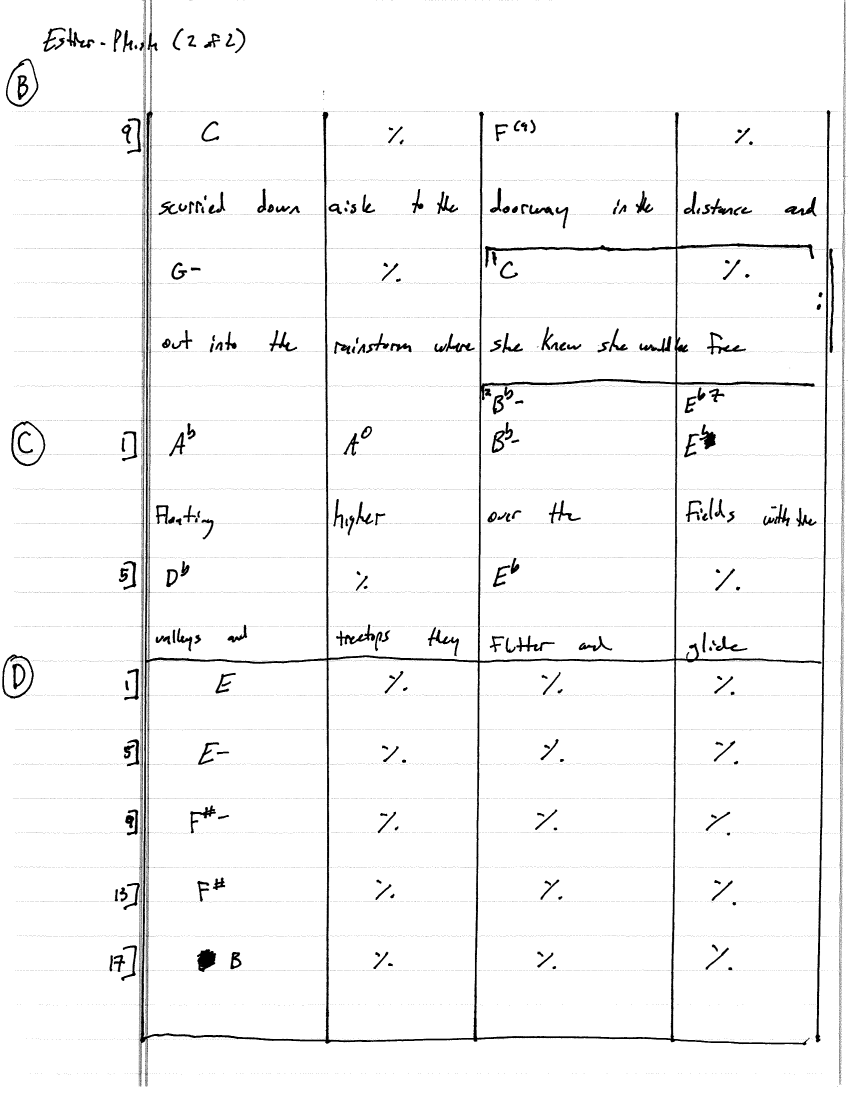 Esther - Phish (2 of 2)
B
9] C ٪ F(9) ٪
scurried down aisle to the doorway in the distance and
G- ٪ 1 C ٪ :
out into the rainstorm where she knew she would be free
2 Bb- Eb7
C 1] Ab Ao Bb- Eb
Floating higher over the fields with the
5] Db ٪ Eb ٪
valleys and treetops they flutter and glide
D 1] E ٪ ٪ ٪
5] E- ٪ ٪ ٪
9] F#- ٪ ٪ ٪
13] F# ٪ ٪ ٪
17] B ٪ ٪ ٪